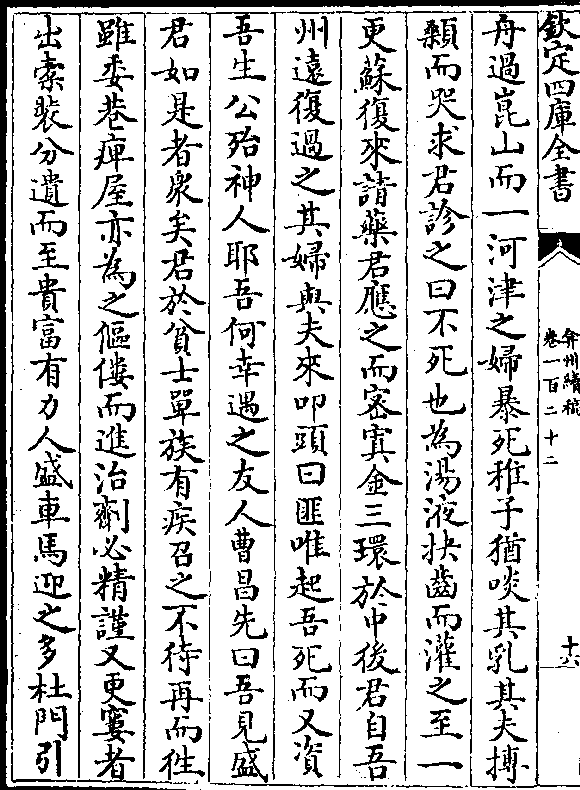 欽定四庫全書
弇州續稿
卷一百二十二
十六
舟過崑山而一河津之婦暴死稚子猶啖其乳其夫搏
顙而哭求君診之曰不死也為湯液抉齒而灌之至一
更蘇復來請藥君應之而密寘金三環於中後君自吾
州遠復過之其婦與夫來叩頭曰匪唯起吾死而又資
吾生公殆神人耶吾何幸遇之友人曹昌先曰吾見盛
君如是者衆矣君於貧士單族有疾召之不待再而徃
雖委巷痺屋亦為之傴僂而進治劑必精謹又更窶者
出橐裝分遺而至貴富有力人盛車馬迎之多杜門引